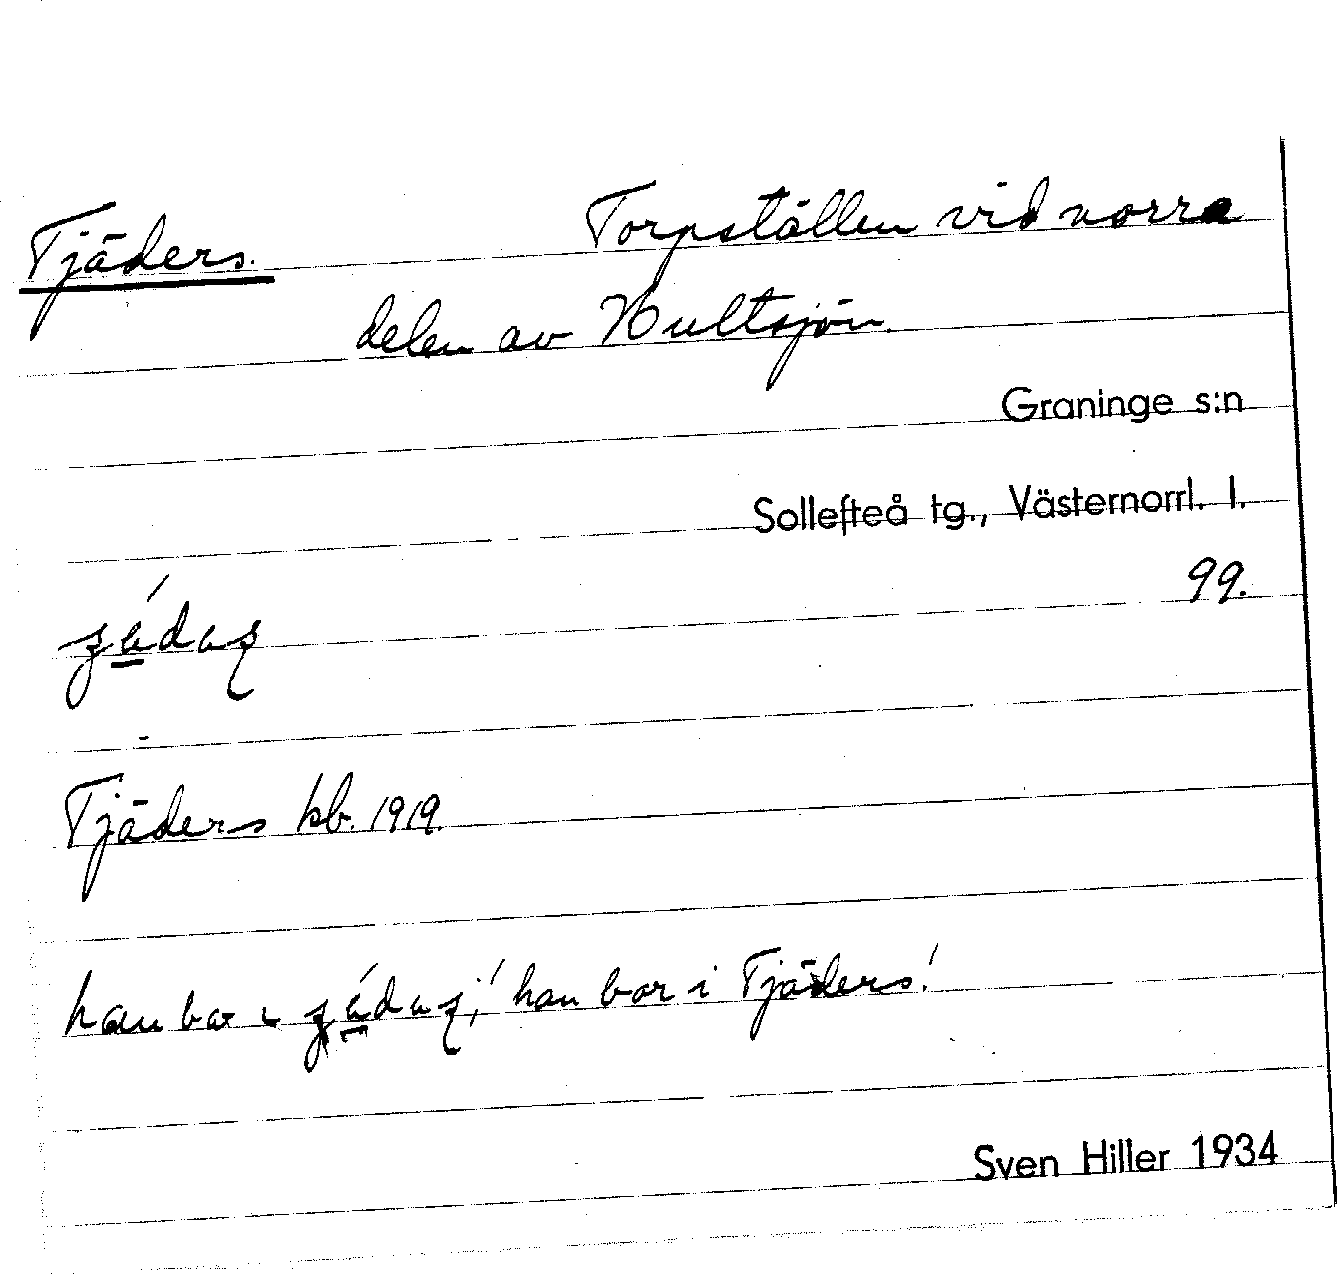 Tjäders. Torpställen vid norra
delen av Hultsjön.
Graninge s:n
Sollefteå tg., Västernorrl. l.
99.
Tjäders kb. 1919.
han bor i Tjäders!
Sven Hiller 1934